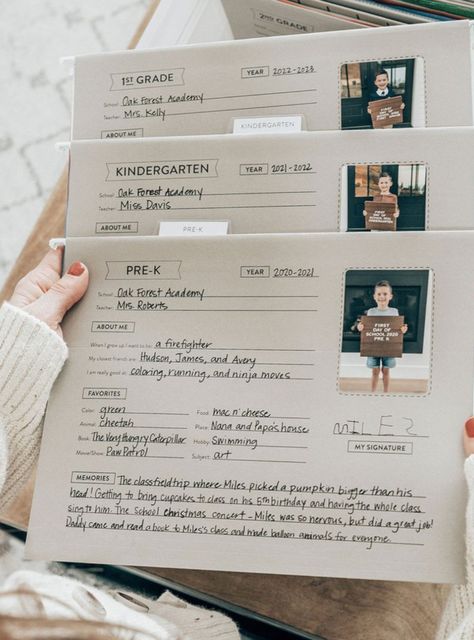 2ND GRADE
1ST GRADE
YEAR 2022-2023
School: Oak Forest Academy
Teacher: Mrs. Kelly
ABOUT ME
KINDERGARTEN
KINDERGARTEN
YEAR 2021-2022
School: Oak Forest Academy
Teacher: Miss Davis
ABOUT ME
PRE-K
PRE-K
YEAR 2020-2021
School: Oak Forest Academy
Teacher: Mrs. Roberts
FIRST DAY OF SCHOOL 2020 PRE K
ABOUT ME
When I grow up I want to be: a firefighter
My closest friends are: Hudson, James, and Avery
I am really good at: coloring, running, and ninja moves
FAVORITES
Color: green Food: mac n' cheese
Animal: cheetah Place: Nana and Papa's house
Book: The Very Hungry Caterpillar Hobby: Swimming
Movie/Show: Paw Patrol Subject: art
MILES
MY SIGNATURE
MEMORIES The class field trip where Miles picked a pumpkin bigger than his
head! Getting to bring cupcakes to class on his 5th birthday and having the whole class
sing to him. The School christmas concert - Miles was so nervous, but did a great job!
Daddy came and read a book to Miles's class and made balloon animals for everyone.